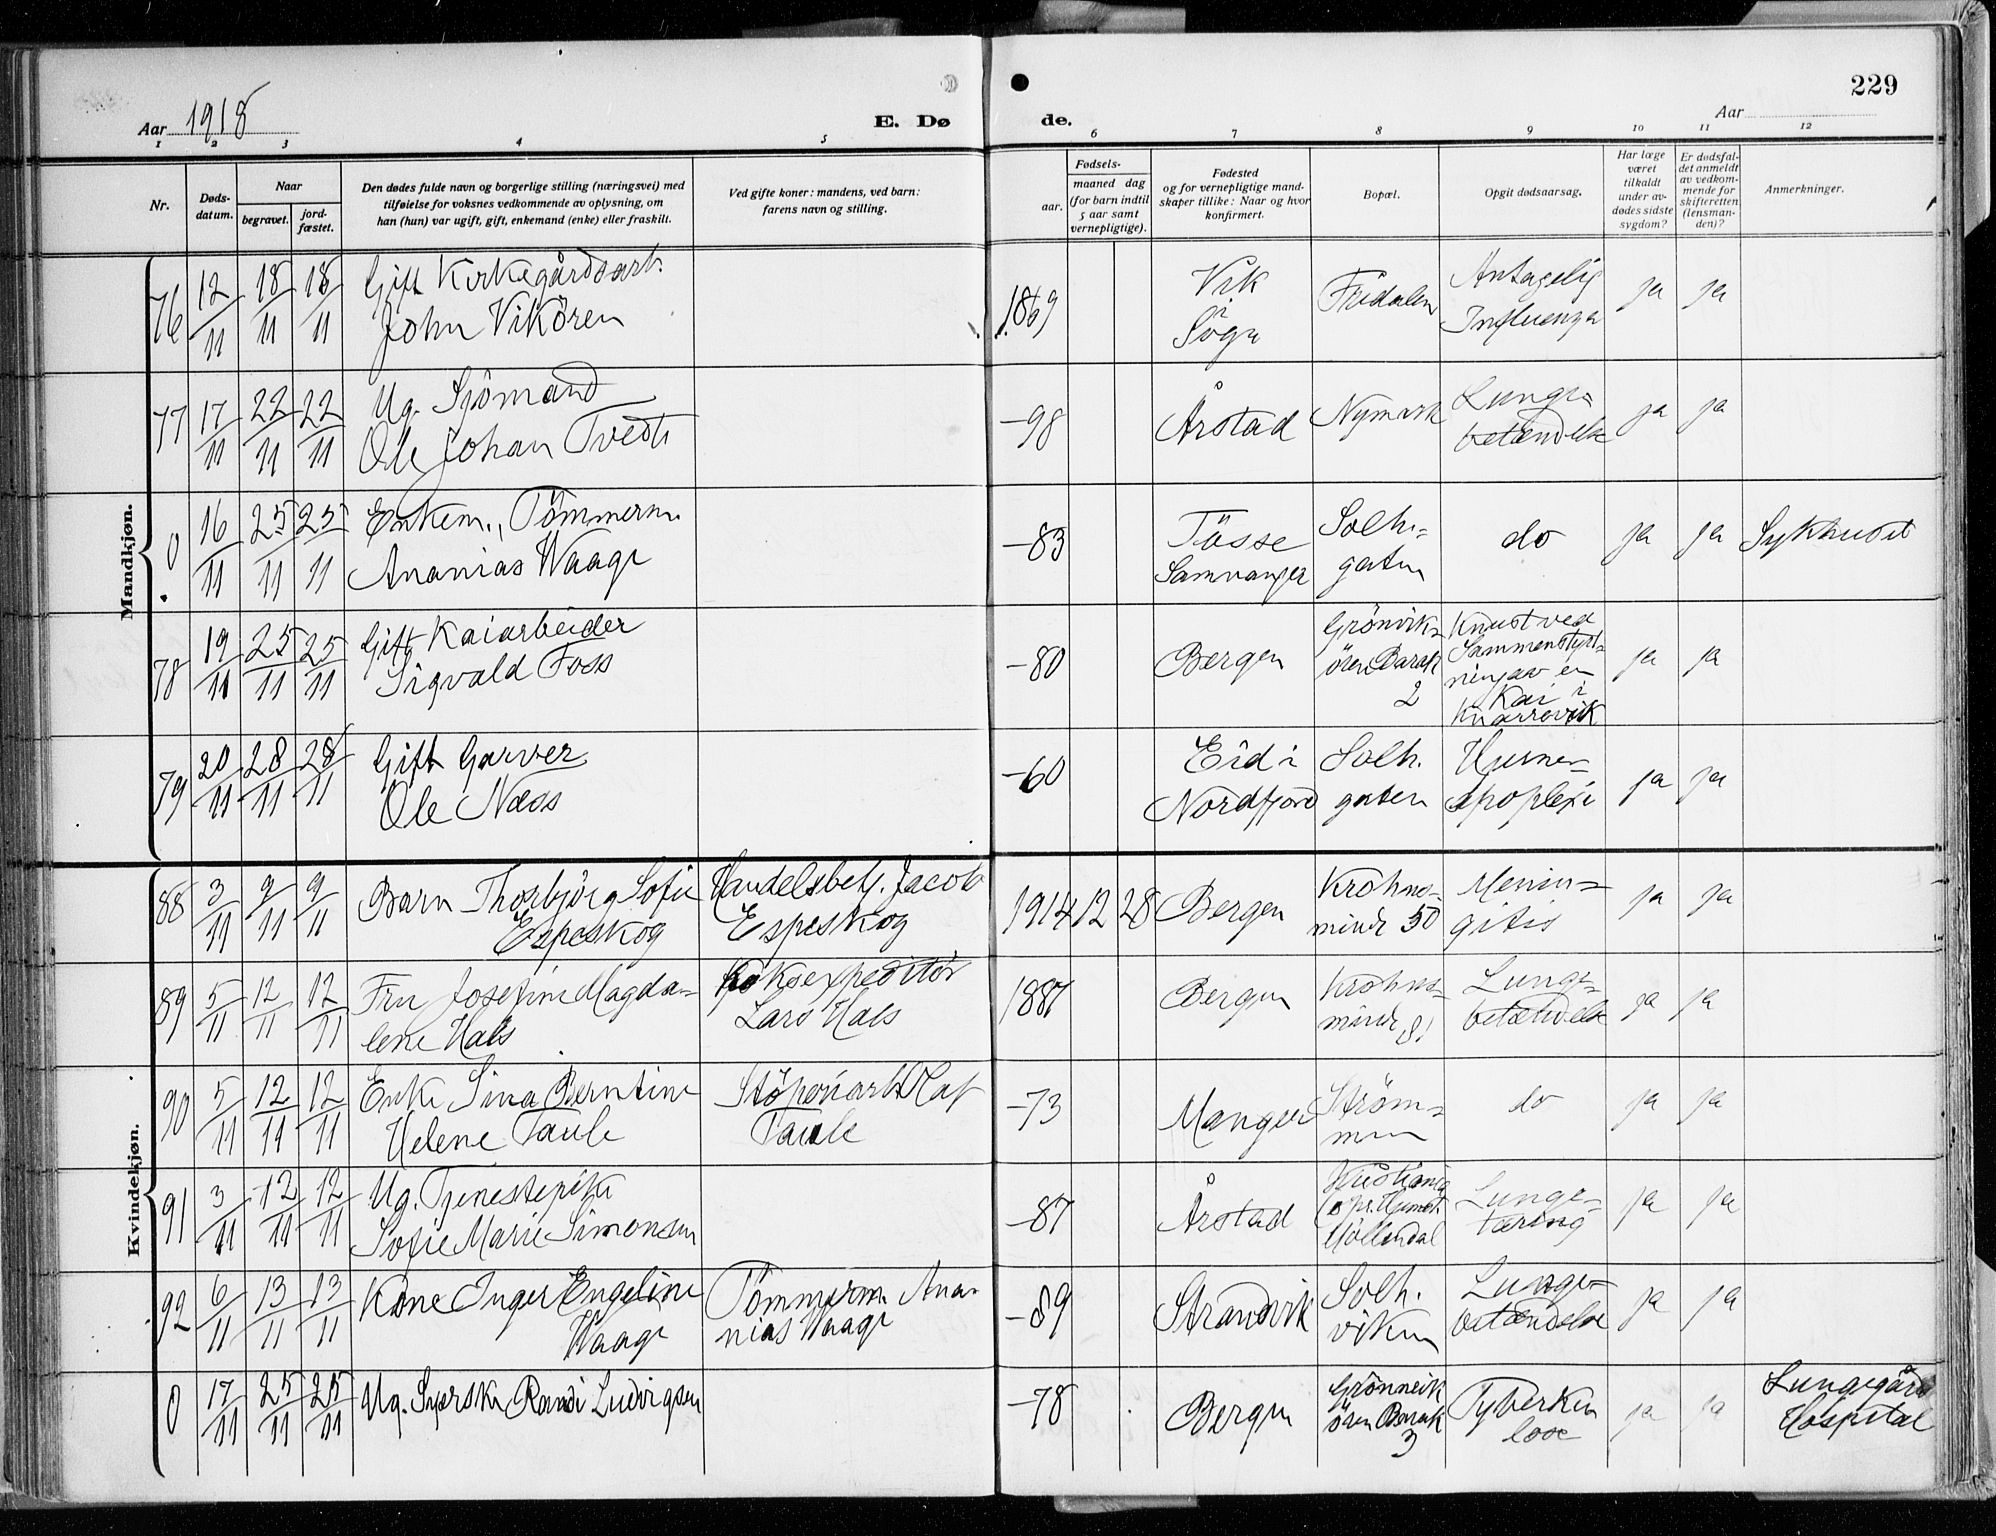 229
Aar 1918
E. Dø
de.
Aar
1 2 3 4 5 6 7 8 9 10 11 12
Nr.
Døds-
datum.
Naar
begravet.
jord-
fæstet.
Den dødes fulde navn og borgerlige stilling (næringsvei) med
tilføielse for voksnes vedkommende av oplysning, om
han (hun) var ugift, gift, enkemand (enke) eller fraskilt.
Ved gifte koner: mandens, ved barn:
farens navn og stilling.
Fødsels-
aar.
maaned dag
(for barn indtil
5 aar samt
vernepligtige).
Fødested
og for vernepligtige mand-
skaper tillike: Naar og hvor
konfirmert.
Bopæl.
Opgit dødsaarsag.
Har læge
været
tilkaldt
under av-
dødes sidste
sygdom?
Er dødsfal-
det anmeldt
av vedkom-
mende for
skifteretten
(lensman-
den)?
Anmerkninger.
Mandkjøn.
76 12/11 18/11 18/11 Gift Kirkegårdsarb.
John Vikören
1869 Vik
i
Sogn
Fridalen
Antagelig
Influenza
ja ja
77 17/11 22/11 22/11 Ug. Sjömand
Ole Johan Tvedt
-98 Årstad Nymark
Lunge-
betændelse
ja ja
0 16/11 25/11 25/11 Enkem., Tömmerm.
Ananias Waage
-83 Tösse
Samnanger
Solh.-
gaten
do ja ja Sykhuset
78 19/11 25/11 25/11 Gift Kaiarbeider
Sigvald Foss
-80 Bergen
Grönvik-
ören Barak
2
Knust ved
Sammenstyrt-
ning av en
Kai i
Knarrevik
ja ja
79 20/11 28/11 28/11 Gift Garver
Ole Næss
-60 Eid i
Nordfjord
Solh.
gaten
Hjerne-
apoplexi
ja ja
Kvindekjøn.
88 3/11 9/11 9/11 Barn Thorbjörg Sofie
Espeskog
Handelsbetj. Jacob
Espeskog
1914 12 28 Bergen
Krohns-
minde 50
Menin-
gitis
ja ja
89 5/11 12/11 12/11 Fru Josefine Magda-
lene Hals
Koksexpeditör
Lars Hals
1887 Bergen
Krohns-
minde 81
Lunge-
betændelse
ja ja
90 5/11 12/11 12/11 Enke Sina Berntine
Helene Taule
Stöperiarb. Olaf
Taule
-73 Manger
Ström-
men
do ja ja
91 3/11 12/11 12/11 Ug. Tjenestepike
Sofie Marie Simonsen
-87 Årstad
Kristiania
Möllendal
Lunge-
tæring
ja ja
92 6/11 13/11 13/11 Kone Inger Engeline
Waage
Tömmerm. Ana-
nias Waage
-89 Strandvik
Solh.
viken
Lunge-
betændelse
ja ja
0 17/11 25/11 25/11 Ug. Syerske Randi Ludvigsen
-78 Bergen
Grönnevik
ören Barak
3
Tyberku
lose
ja ja
Lungegård
Hospital